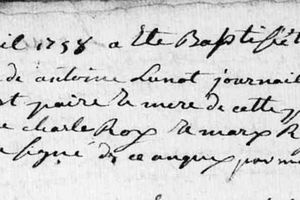 il 1758 a Ete Baptisée
de antoine Lunot journail
st paire & mere de cette p
e charle Rox & marx R
signé de ce anquis par m